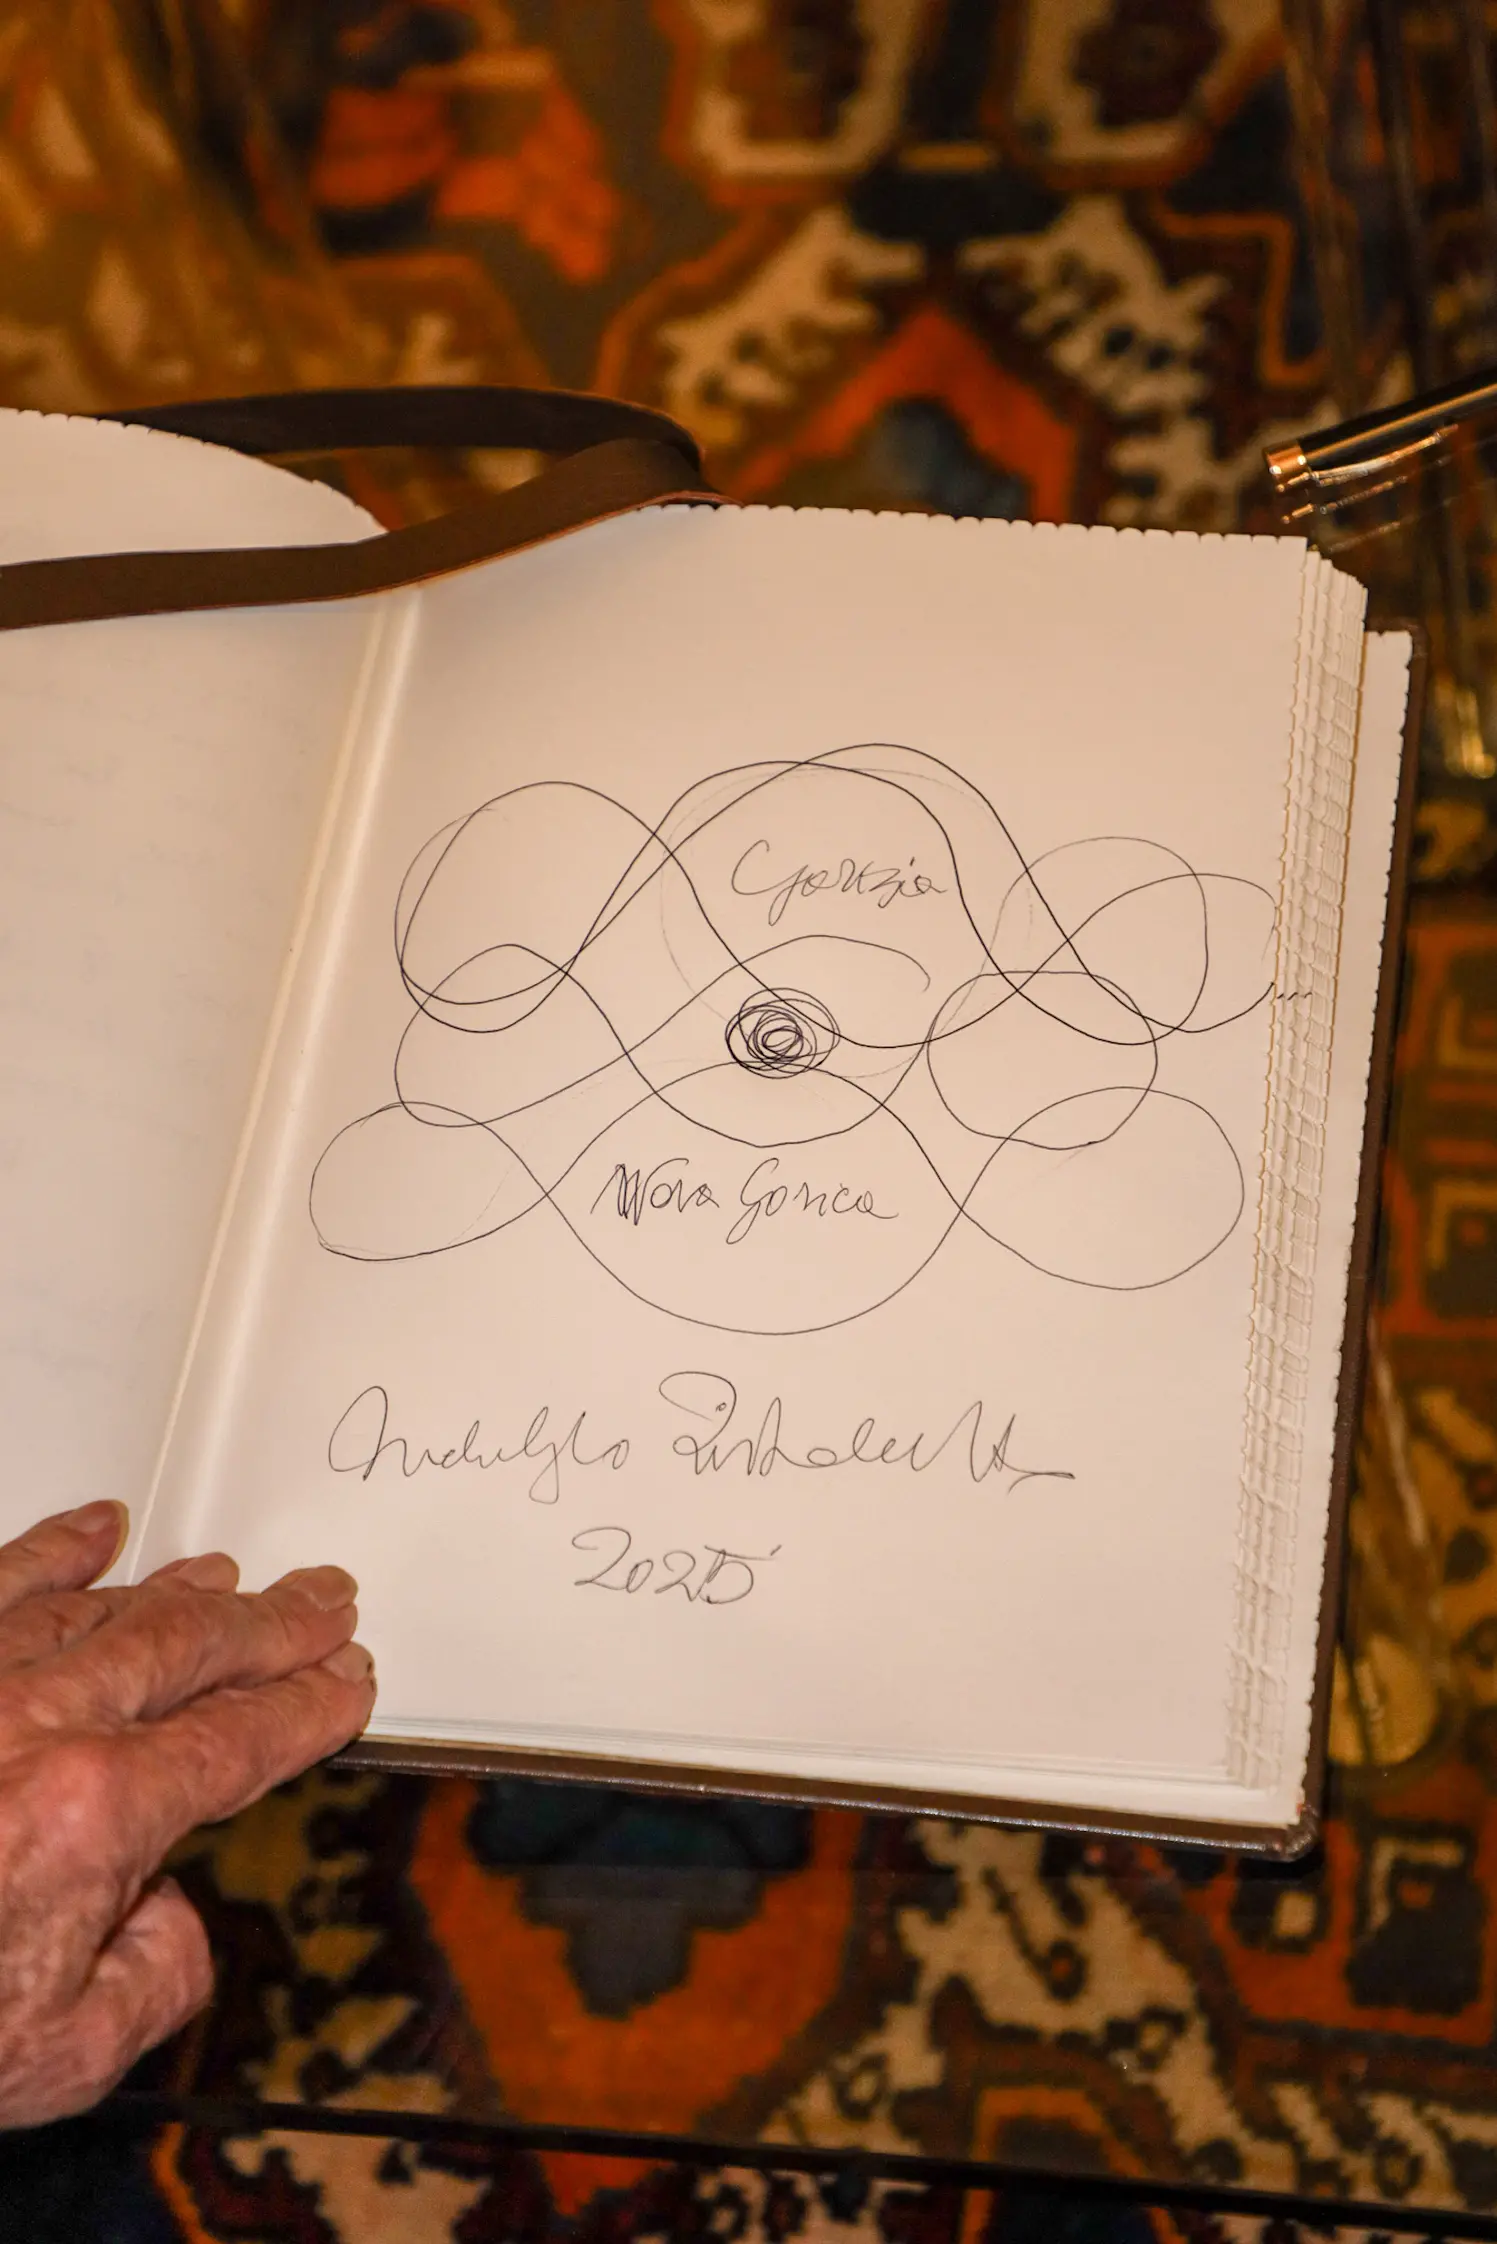 Gorizia
Nova Gorica
Michelangelo Pistoletto
2025